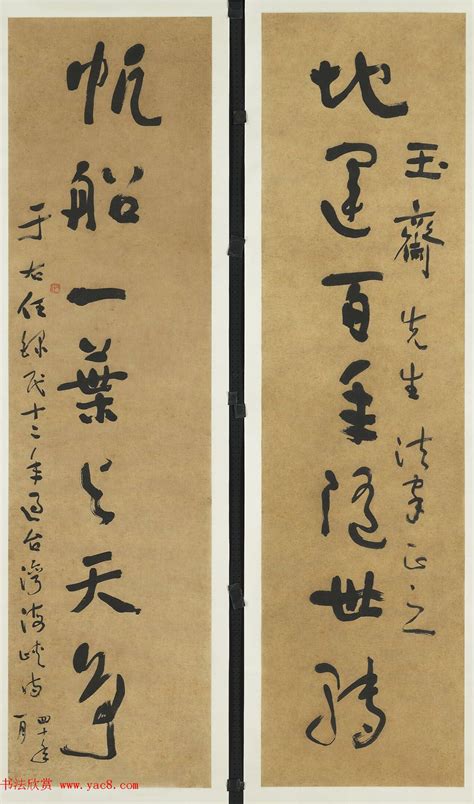 玉齋先生法家正之
地運百年隨世轉
帆船一葉与天爭
于右任錄民十二年過台灣海峽詩
四十年
书法欣赏 www.yac8.com